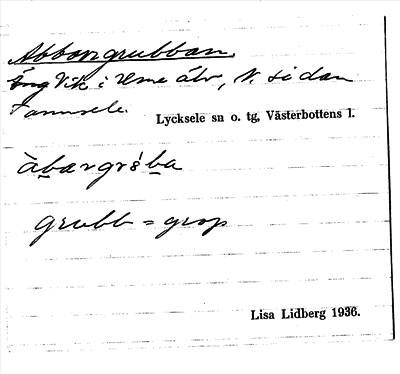 Abborrgrubban.
Vik i Ume älv, N. sidan
Tannsele.
Lycksele sn o. tg, Västerbottens l.
àbærgrùba
grubb = grop
Lisa Lidberg 1936.